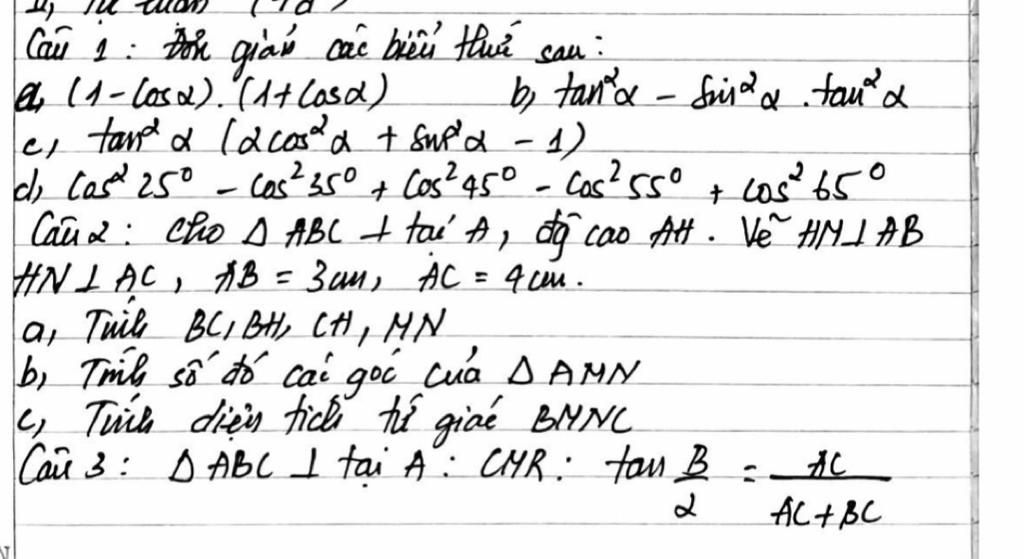 II, Tự luận (7đ)
Câu 1: Đơn giản các biểu thức sau:
a, (1 - cos α).(1 + cos α) b, tan²α - sin²α . tan²α
c, tan²α (2cos²α + sin²α - 1)
d, cos²25° - cos²35° + cos²45° - cos²55° + cos²65°
Câu 2: Cho Δ ABC ⊥ tại A, đg cao AH. Vẽ HM ⊥ AB
HN ⊥ AC, AB = 3cm, AC = 4cm.
a, Tính BC, BH, CH, MN
b, Tính số đo các góc của Δ AMN
c, Tính diện tích tứ giác BMNC
Câu 3: Δ ABC ⊥ tại A: CMR: tan B/2 = AC/(AC + BC)